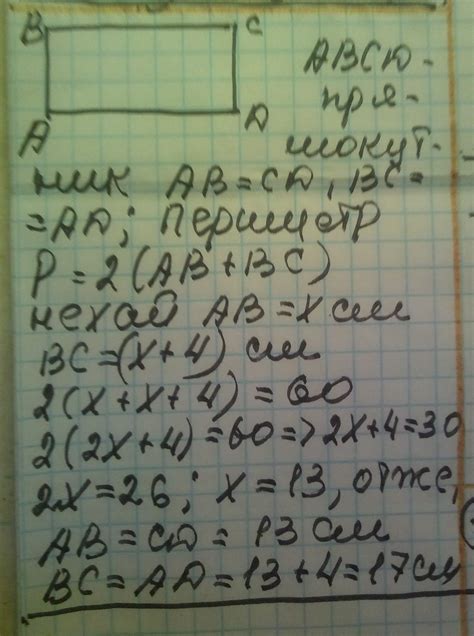 B C
A D
ABCD-
пря-
мокут-
ник AB=CD, BC=
=AD; Периметр
P=2(AB+BC)
нехай AB=x см
BC=(x+4) см
2(x+x+4)=60
2(2x+4)=60=>2x+4=30
2x=26; x=13, отже,
AB=CD=13 см
BC=AD=13+4=17см